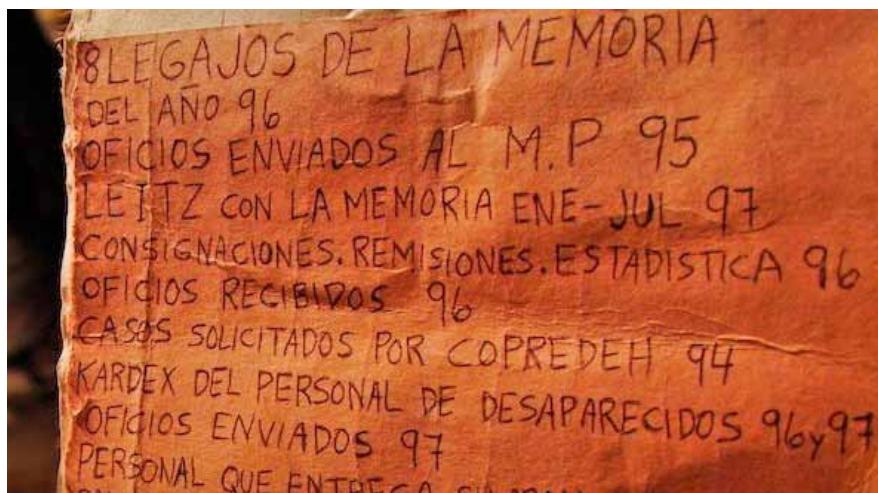 8 LEGAJOS DE LA MEMORIA
DEL AÑO 96
OFICIOS ENVIADOS AL M.P 95
LEITZ CON LA MEMORIA ENE-JUL 97
CONSIGNACIONES. REMISIONES. ESTADISTICA 96
OFICIOS RECIBIDOS 96
CASOS SOLICITADOS POR COPREDEH 94
KARDEX DEL PERSONAL DE DESAPARECIDOS 96 y 97
OFICIOS ENVIADOS 97
PERSONAL QUE ENTREGA